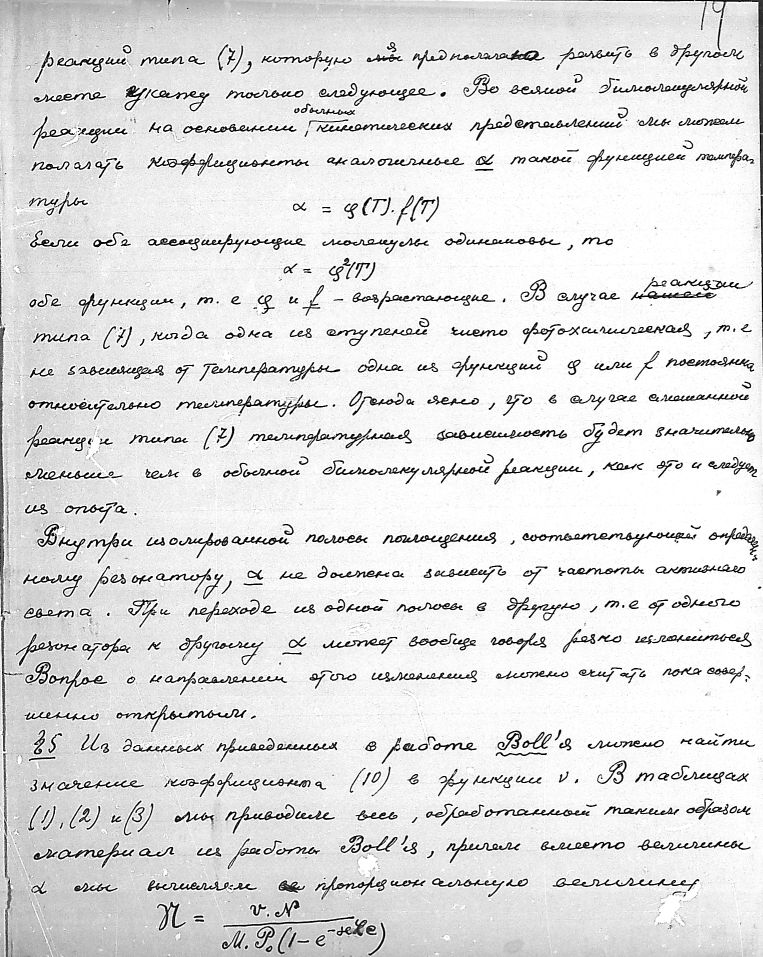 19
реакций типа (7), которую мы предполагаю развить в другом
месте укажу только следующее. Во всякой бимолекулярной
обычных
реакции на основании кинетических представлений мы можем
полагать коэффициенты аналогичные α такой функцией темпера-
туры
α = φ(T). f(T)
Если обе ассоциирующие молекулы одинаковы, то
α = φ²(T)
обе функции, т. е φ и f – возрастающие. В случае нашей реакции
типа (7), когда одна из ступеней чисто фотохимическая, т. е
не зависящая от температуры одна из функций φ или f постоянна
относительно температуры. Отсюда ясно, что в случае смешанной
реакции типа (7) температурная зависимость будет значительно
меньше чем в обычной бимолекулярной реакции, как это и следует
из опыта.
Внутри изолированной полосы поглощения, соответствующей определен-
ному резонатору, α не должна зависеть от частоты активного
света. При переходе из одной полосы в другую, т. е от одного
резонатора к другому α может вообще говоря резко измениться
Вопрос о направлении этого изменения можно считать пока совер-
шенно открытым.
§5 Из данных приведенных в работе Boll'я можно найти
значение коэффициента (10) в функции ν. В таблицах
(1), (2) и (3) мы приводим весь, обработанный таким образом
материал из работы Boll'я, причем вместо величины
α мы вычисляем ей пропорциональную величину
𝔑 = ν. N / M. P₀ (1 – e